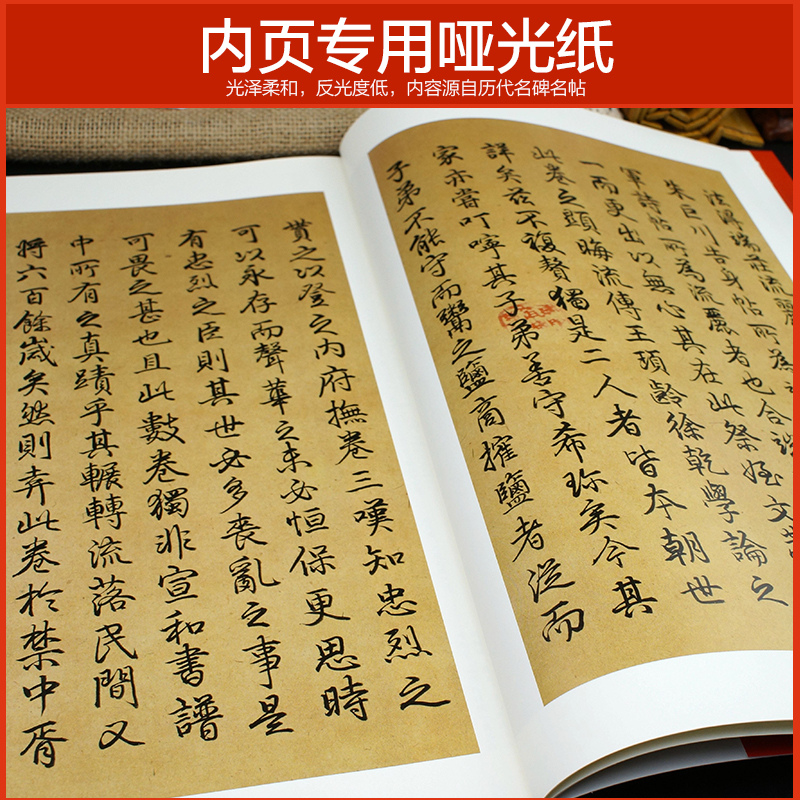 内页专用哑光纸
光泽柔和，反光度低，内容源自历代名碑名帖
端莊流麗
朱巨川告身帖所為
軍詩帖所為流麗者也合諸
一而更出以無心其在此祭姪文當
此卷之顯晦流傳王頊齡徐乾學論之
詳矣茲不復贅獨是二人者皆本朝世
家亦當叮嚀其子弟善守希珍矣今其
子弟不能守而鬻之鹽商攉鹽者從而
贄之以登之內府撫卷三嘆知忠烈之
可以永存而聲華之未必恒保更思時
有忠烈之臣則其世必多喪亂之事是
可畏之甚也且此數卷獨非宣和書譜
中所有之真蹟乎其輾轉流落民間又
將六百餘歲矣然則弆此卷於禁中胥